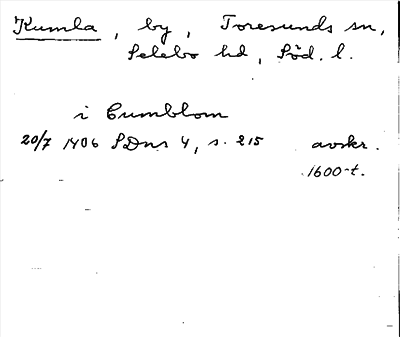 Kumla, by, Toresunds sn,
Selebo hd, Söd. l.
i Cumblom
20/7 1406 SDns 4, s. 215 avskr.
1600-t.